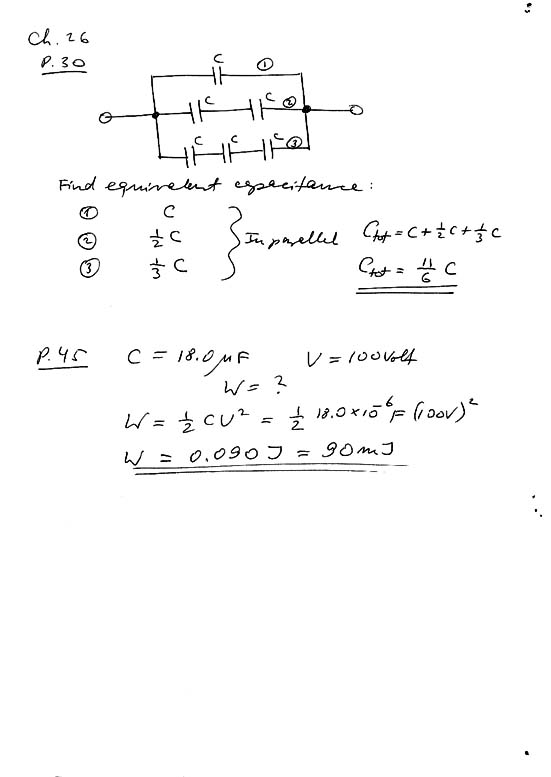 Ch. 26
P. 30
C ①
C C ②
C C C ③
Find equivalent capacitance:
① C
② 1/2 C } In parallel C_tot = C + 1/2 C + 1/3 C
③ 1/3 C C_tot = 11/6 C
P. 45 C = 18.0 μF V = 100 Volt
W = ?
W = 1/2 CU² = 1/2 18.0 × 10⁻⁶ F (100V)²
W = 0.090 J = 90 mJ